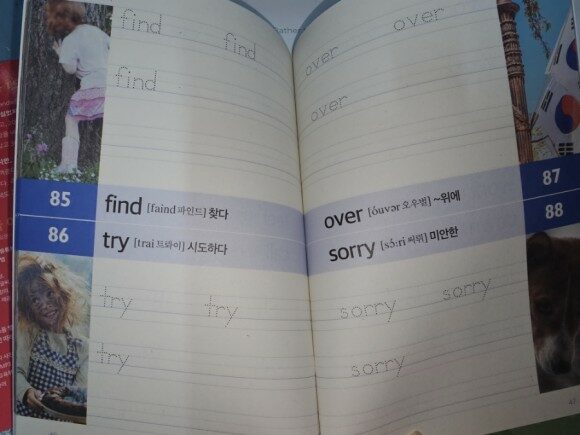 find
find
find
85
find [faind 파인드] 찾다
86
try [trai 트롸이] 시도하다
try
try
try
over
over
over
87
over [óuvər 오우벌] ~위에
88
sorry [sɔ́:ri 써뤼] 미안한
sorry
sorry
sorry